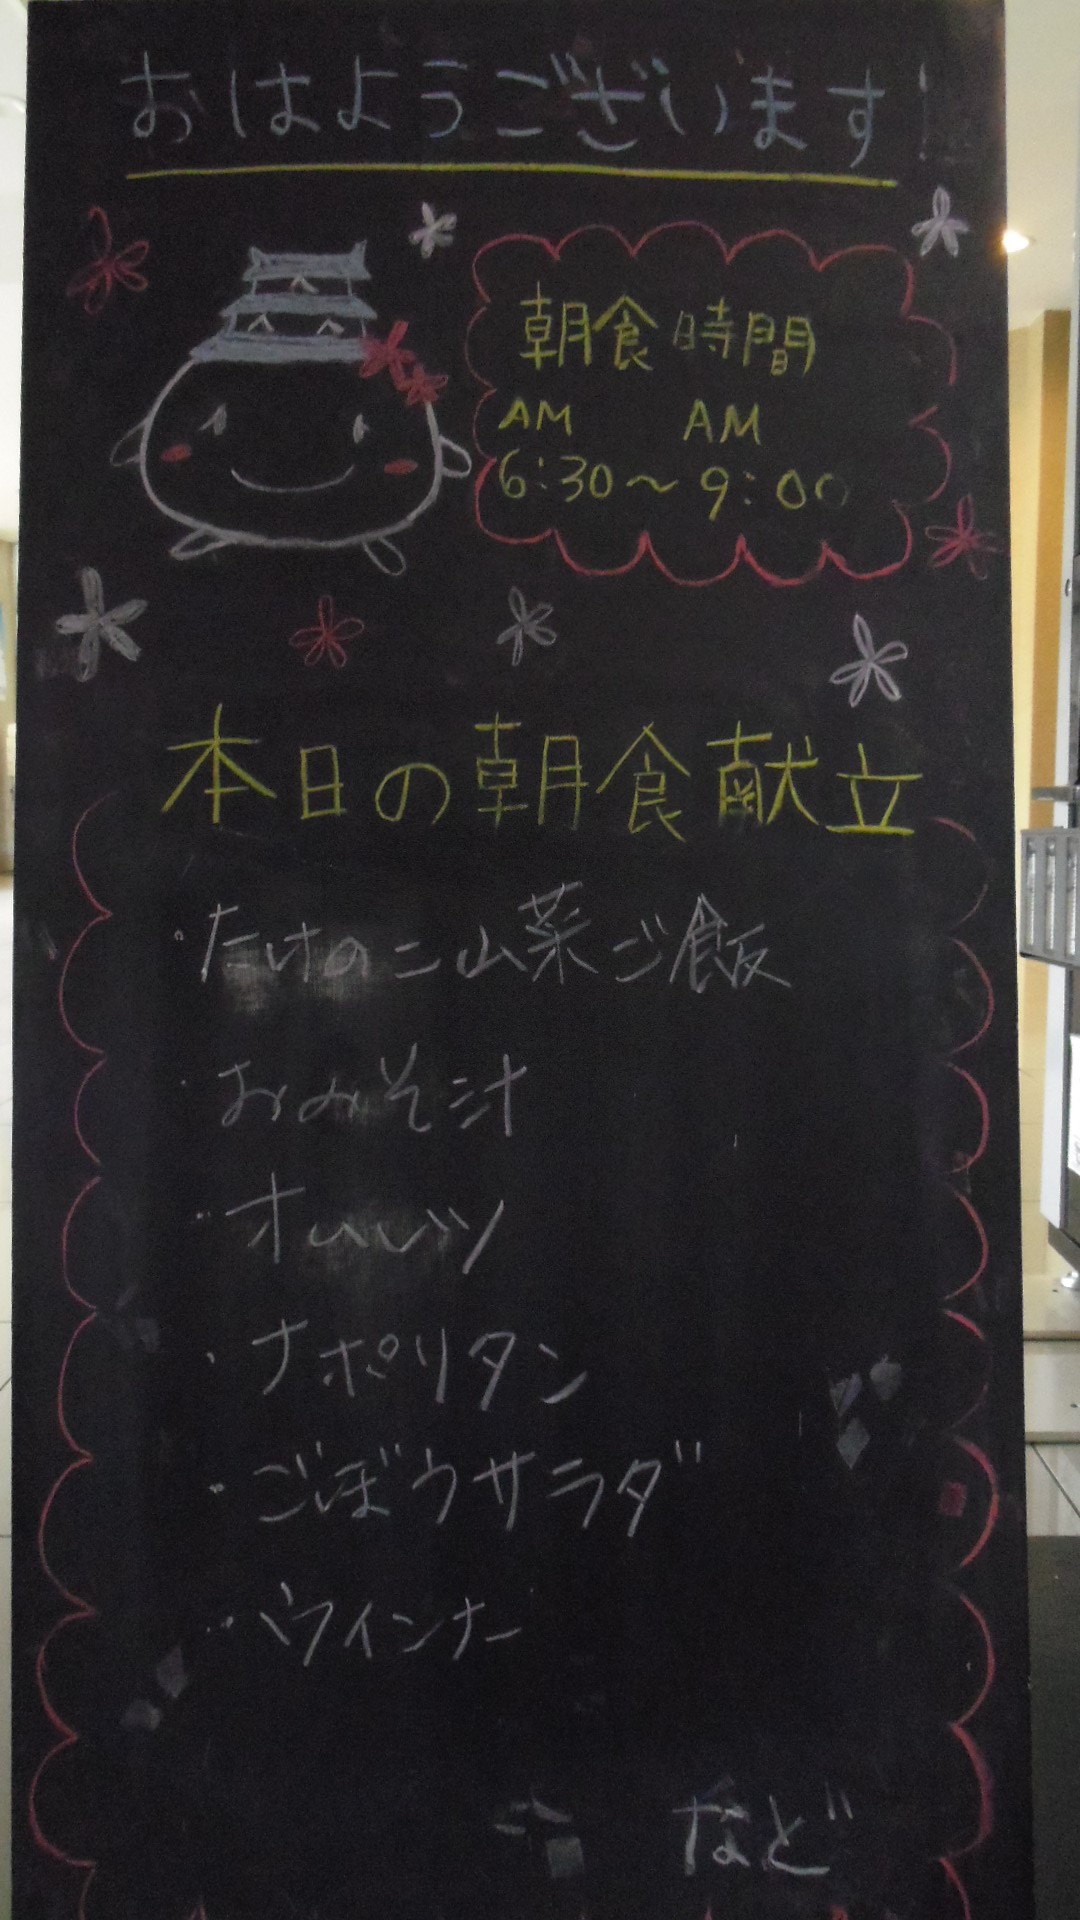 おはようございます!
朝食時間
AM AM
6:30〜9:00
本日の朝食献立
・たけのこ山菜ご飯
・おみそ汁
・オムレツ
・ナポリタン
・ごぼうサラダ
・ウインナー
など